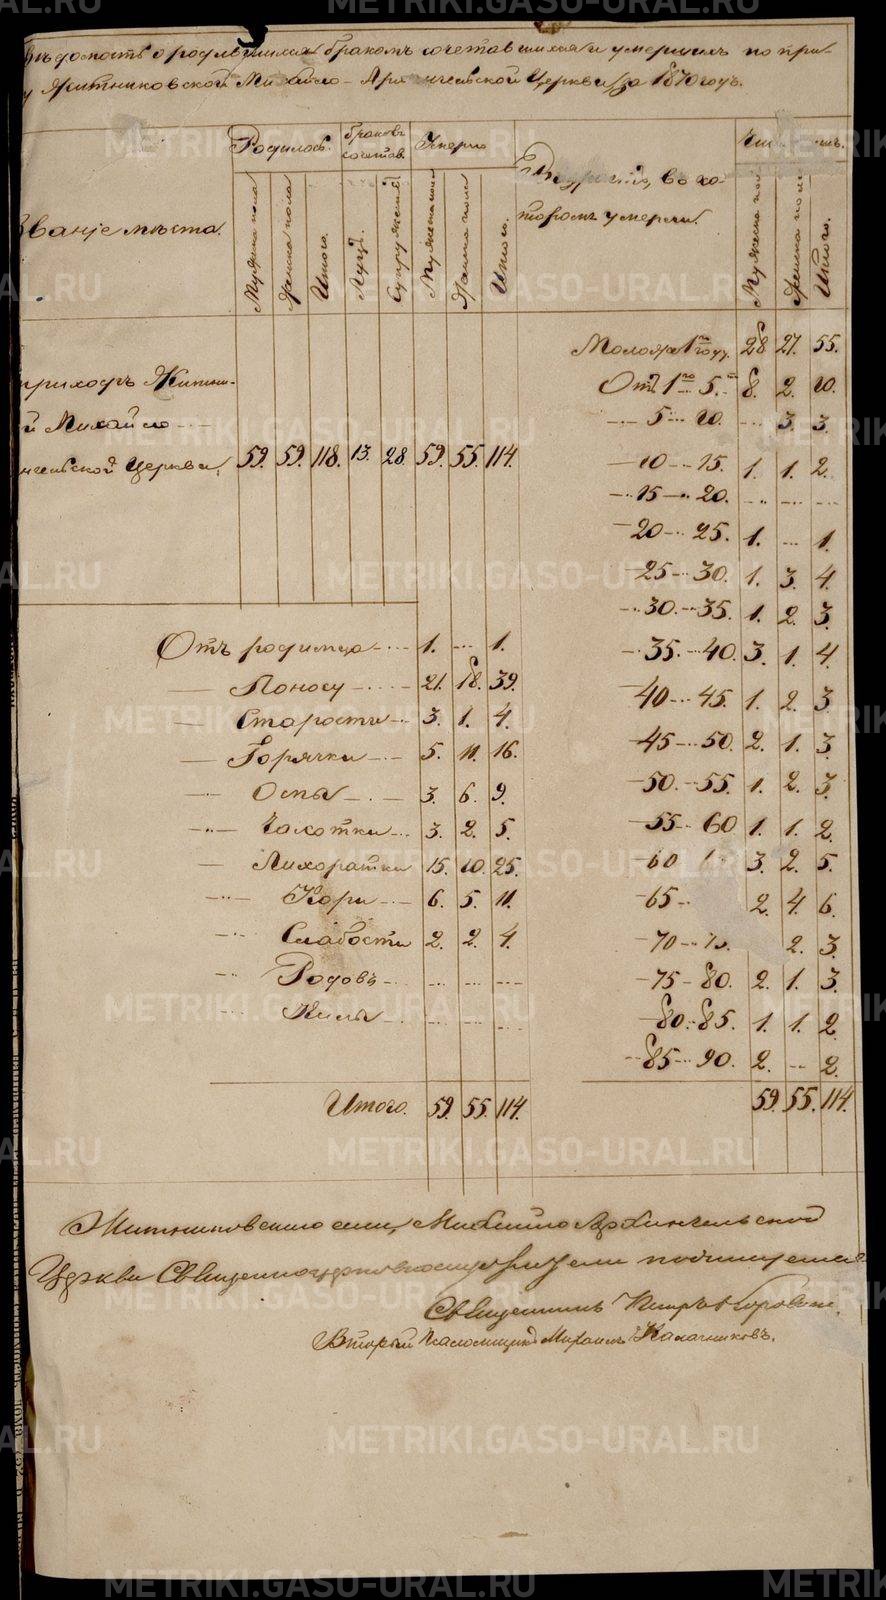 Вѣдомость о родившихся бракомъ сочетавшихся и умершихъ по при-
Житниковской Михайло-Архангельской Церкви за 1870 годъ.
Званіе мѣста.
Родилось.
Мужеска пола
Женска пола
Итого.
Браковъ сочетав.
Луц.
Супружествъ
Умерло
Мужеска пола
Женска пола
Итого.
въ ко-
торомъ умерли.
Мужеска пола
Женска пола
Итого.
приходъ Житни-
й Михайло-
нгельской Церкви. 59. 59. 118. 13. 28. 59. 55. 114.
Моложе 1го году. 28 27. 55.
Отъ 1го - 5. 8. 2. 10.
- 5 - 10. - 3. 3.
- 10 - 15. 1. 1. 2.
- 15 - 20. - - -
- 20 - 25. 1. - 1.
- 25 - 30. 1. 3. 4.
- 30 - 35. 1. 2. 3.
- 35 - 40. 3. 1. 4.
- 40 - 45. 1. 2. 3.
- 45 - 50. 2. 1. 3.
- 50 - 55. 1. 2. 3.
- 55 - 60 1. 1. 2.
- 60 3. 2. 5.
- 65 - 2. 4. 6.
- 70 - 75. 2. 3.
- 75 - 80. 2. 1. 3.
- 80 - 85. 1. 1. 2.
- 85 - 90. 2. - 2.
59. 55. 114.
Отъ родимца - 1. - 1.
- Поносу - 21. 18. 39.
- Старости - 3. 1. 4.
- Горячки - 5. 11. 16.
- Оспы - 3. 6. 9.
- Чахотки - 3. 2. 5.
- Лихорадки 15. 10. 25.
- Кори - 6. 5. 11.
- Слабости 2. 2. 4.
- Родовъ - - - -
- Килы - - - -
Итого. 59. 55. 114.
Житниковскаго села, Михайло Архангельской
Церкви Священноцерковнослужители подпишемся
Священникъ Петръ
Вторый Псаломщикъ Михаилъ Калачниковъ.
METRIKI.GASO-URAL.RU